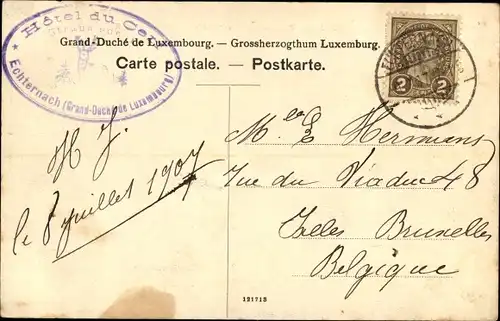 Hôtel du Cerf
Echternach (Grand-Duché de Luxembourg)
Grand-Duché de Luxembourg. — Grossherzogthum Luxemburg.
Carte postale. — Postkarte.
2 2
H J.
le 8 juillet 1907
Mlle E Hermans
rue du Viaduc 48
Ixeles Bruxelles
Belgique
121713